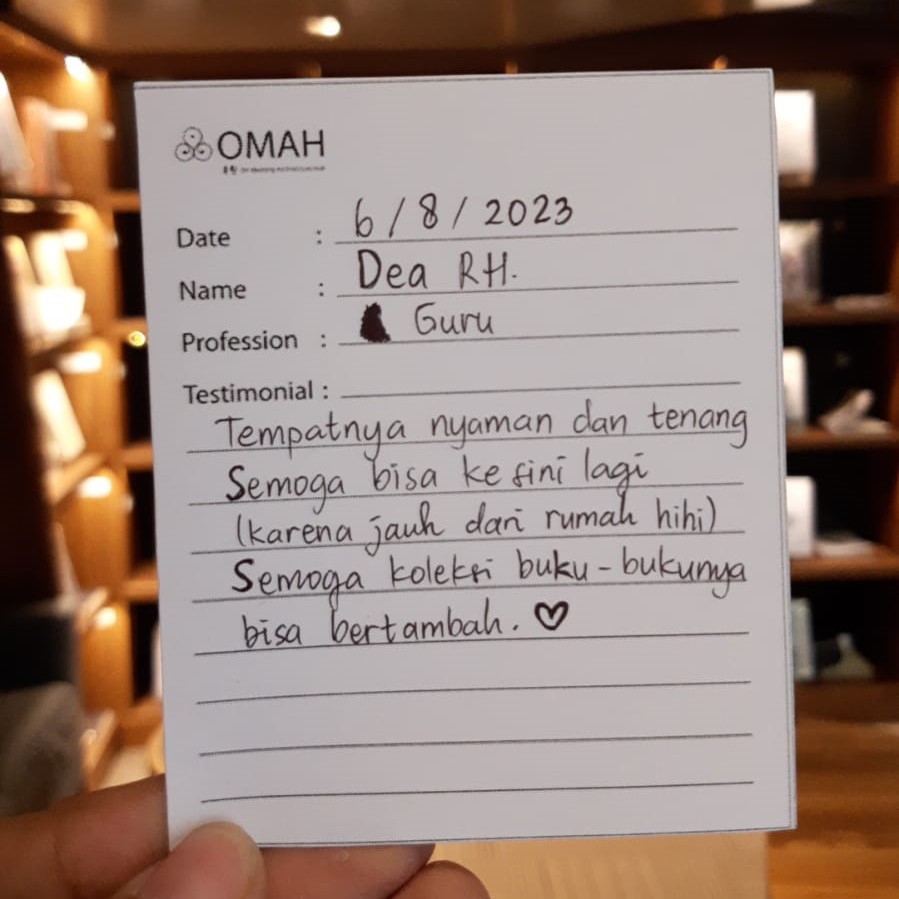 OMAH
Date : 6 / 8 / 2023
Name : Dea RH.
Profession : Guru
Testimonial :
Tempatnya nyaman dan tenang
Semoga bisa ke sini lagi
(karena jauh dari rumah hihi)
Semoga koleksi buku-bukunya
bisa bertambah. ♡